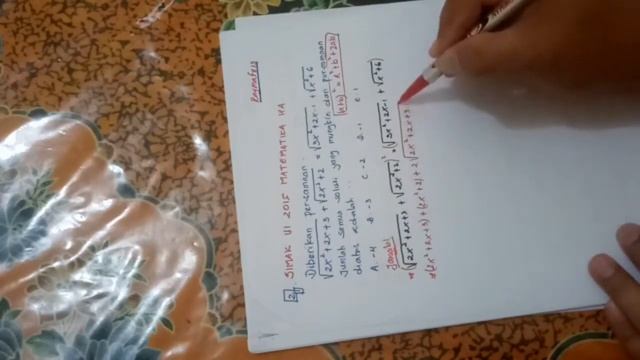 2. SIMAK UI 2015 MATEMATIKA IPA
Diberikan persamaan
√2x²+2x+3 + √2x²+2 = √3x²+2x-1 + √x²+6
Jumlah semua solusi yang mungkin dari persamaan
diatas adalah...
(a+b)² = a²+b²+2ab
A. -4 B. -3 C. -2 D. -1 E. 1
Jawab:
⇒ (√2x²+2x+3 + √2x²+2)² = (√3x²+2x-1 + √x²+6)
⇒ (2x²+2x+3) + (2x²+2) + 2√2x²+2x+3